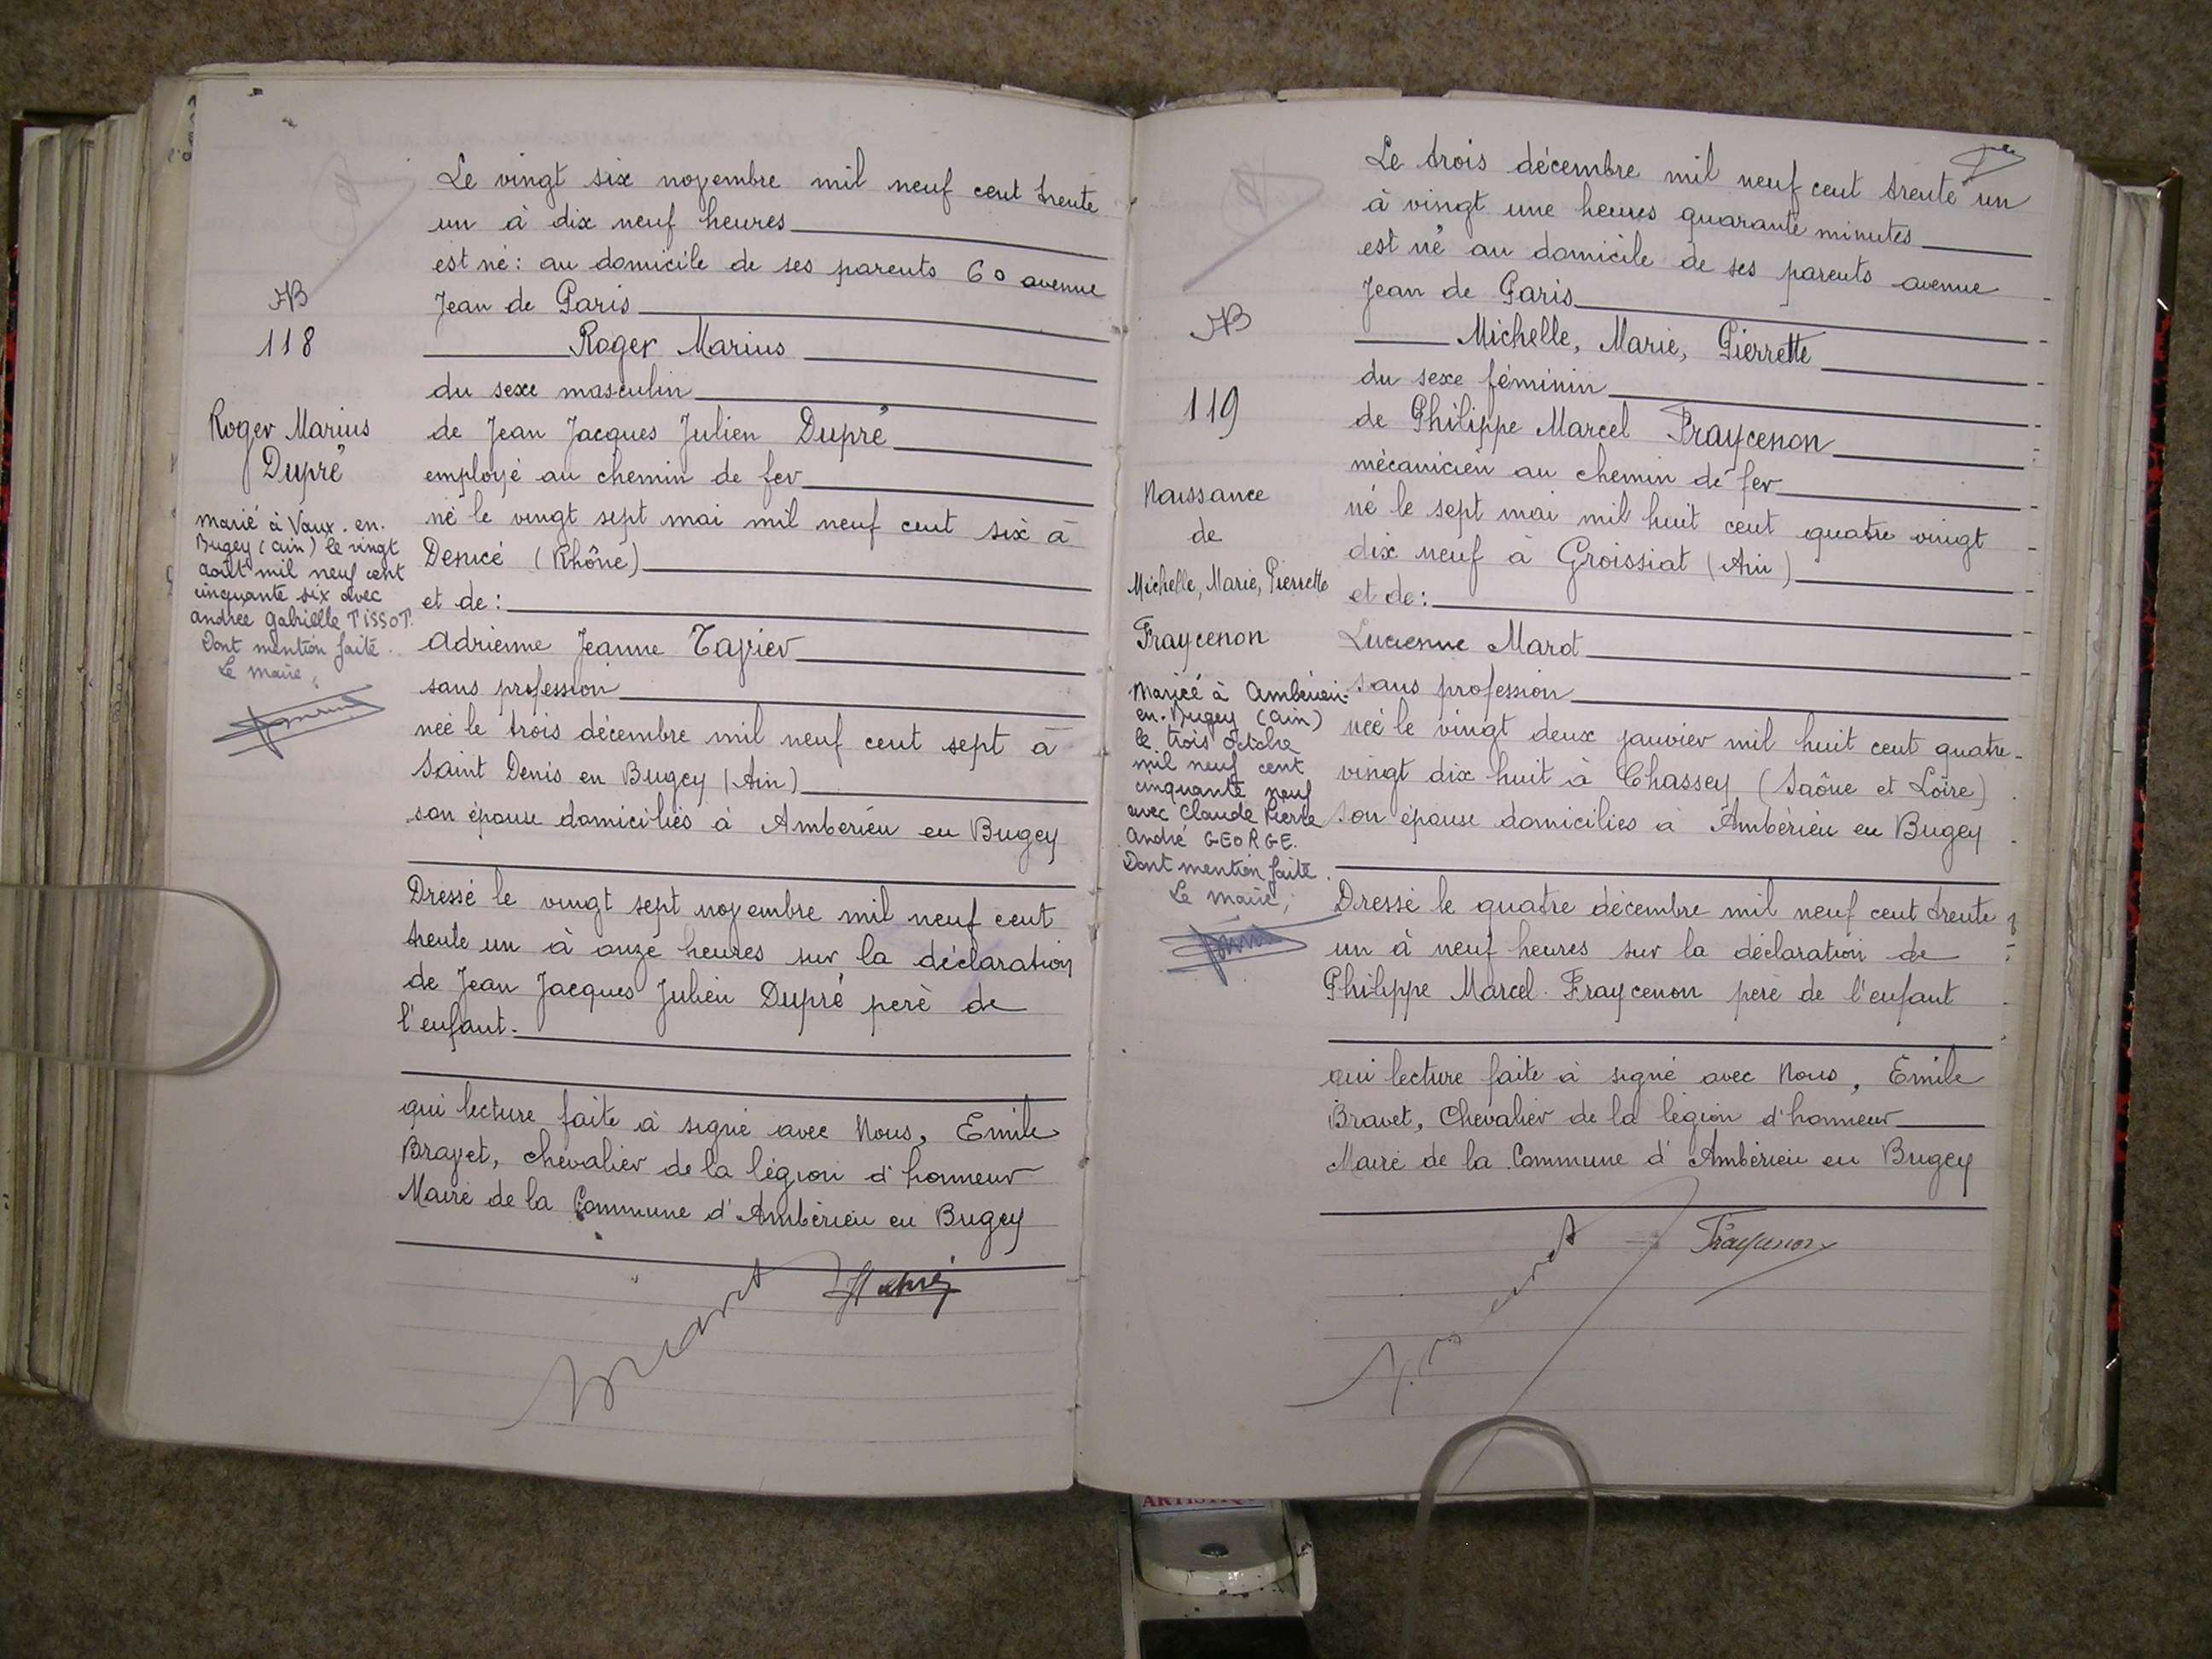 Le vingt six novembre mil neuf cent trente
un à dix neuf heures
est né : au domicile de ses parents 60 avenue
Jean de Paris
Roger Marius
du sexe masculin
de Jean Jacques Julien Dupré
employé au chemin de fer
né le vingt sept mai mil neuf cent six à
Denicé (Rhône)
et de :
Adrienne Jeanne
sans profession
née le trois décembre mil neuf cent sept à
Saint Denis en Bugey (Ain)
son épouse domiciliés à Ambérieu en Bugey
Dressé le vingt sept novembre mil neuf cent
trente un à onze heures sur la déclaration
de Jean Jacques Julien Dupré père de
l'enfant.
qui lecture faite à signé avec Nous, Emile
Bravet, chevalier de la légion d'honneur
Maire de la Commune d'Ambérieu en Bugey
118
Roger Marius
Dupré
Marié à Vaux-en-
Bugey (Ain) le vingt
août mil neuf cent
cinquante six avec
Andrée Gabrielle TISSOT.
Dont mention faite.
Le Maire,
Le trois décembre mil neuf cent trente un
à vingt une heures quarante minutes
est né au domicile de ses parents avenue
Jean de Paris
Michelle, Marie, Pierrette
du sexe féminin
de Philippe Marcel Fraycenon
mécanicien au chemin de fer
né le sept mai mil huit cent quatre vingt
dix neuf à Groissiat (Ain)
et de :
Lucienne Marot
sans profession
née le vingt deux janvier mil huit cent quatre-
vingt dix huit à Chassey (Saône et Loire)
son épouse domiciliés à Ambérieu en Bugey
Dressé le quatre décembre mil neuf cent trente
un à neuf heures sur la déclaration de
Philippe Marcel Fraycenon père de l'enfant
qui lecture faite à signé avec Nous, Emile
Bravet, Chevalier de la légion d'honneur
Maire de la Commune d'Ambérieu en Bugey
Fraycenon
119
Naissance
de
Michelle, Marie, Pierrette
Fraycenon
Mariée à Ambérieu-
en-Bugey (Ain)
le trois octobre
mil neuf cent
cinquante neuf
avec Claude Pierre
André GEORGE.
Dont mention faite.
Le Maire,